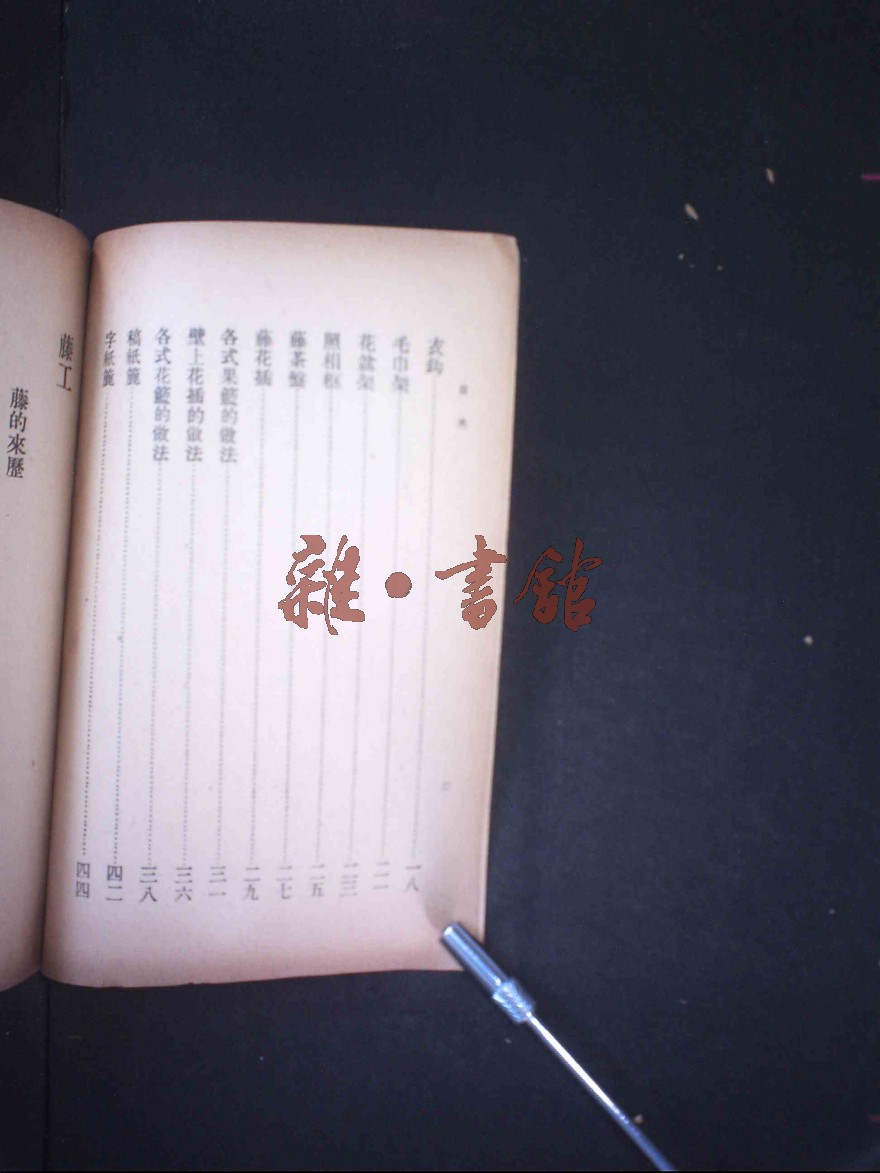 衣鈎 一八
毛巾架 二一
花盆架 二三
照相框 二五
藤茶盤 二七
藤花插 二九
各式果籃的做法 三一
壁上花插的做法 三六
各式花籃的做法 三八
稿紙簏 四二
字紙簏 四四
藤工
藤的來歷
雜·書館